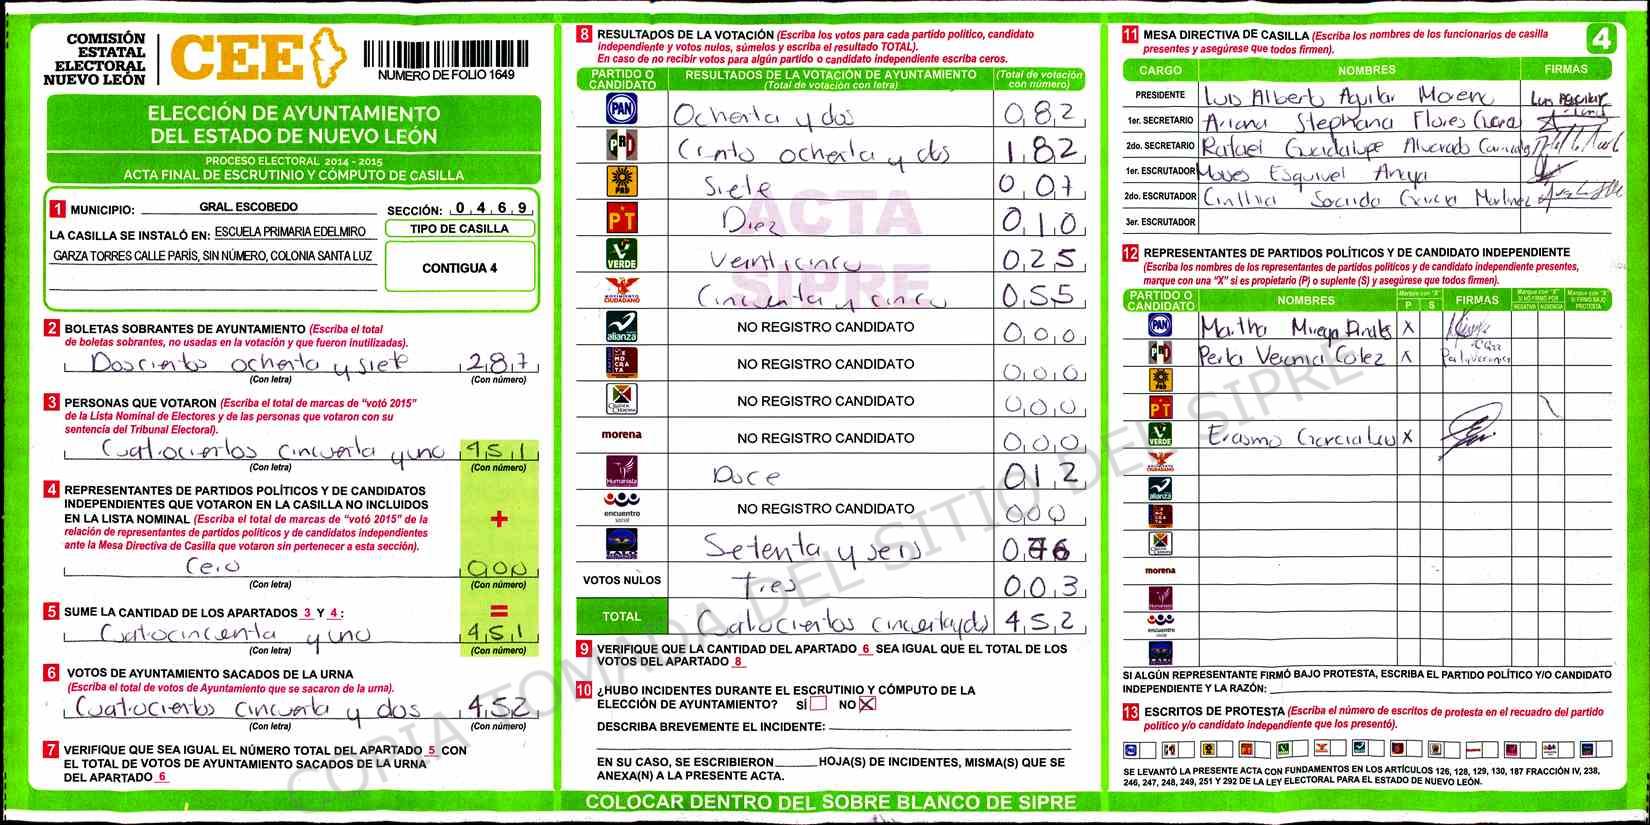 COMISIÓN
ESTATAL
ELECTORAL
NUEVO LEÓN
CEE
NUMERO DE FOLIO 1649
ELECCIÓN DE AYUNTAMIENTO
DEL ESTADO DE NUEVO LEÓN
PROCESO ELECTORAL 2014 - 2015
ACTA FINAL DE ESCRUTINIO Y CÓMPUTO DE CASILLA
1 MUNICIPIO: GRAL. ESCOBEDO SECCIÓN: 0,4,6,9
LA CASILLA SE INSTALÓ EN: ESCUELA PRIMARIA EDELMIRO
GARZA TORRES CALLE PARÍS, SIN NÚMERO, COLONIA SANTA LUZ
TIPO DE CASILLA
CONTIGUA 4
2 BOLETAS SOBRANTES DE AYUNTAMIENTO (Escriba el total
de boletas sobrantes, no usadas en la votación y que fueron inutilizadas).
Doscientos ochenta y siete 2,8,7
(Con letra) (Con número)
3 PERSONAS QUE VOTARON (Escriba el total de marcas de "votó 2015"
de la Lista Nominal de Electores y de las personas que votaron con su
sentencia del Tribunal Electoral).
Cuatrocientos cincuenta y uno 4,5,1
(Con letra) (Con número)
4 REPRESENTANTES DE PARTIDOS POLÍTICOS Y DE CANDIDATOS
INDEPENDIENTES QUE VOTARON EN LA CASILLA NO INCLUIDOS
EN LA LISTA NOMINAL (Escriba el total de marcas de "votó 2015" de la
relación de representantes de partidos políticos y de candidatos independientes
ante la Mesa Directiva de Casilla que votaron sin pertenecer a esta sección).
+
Cero 0,0,0
(Con letra) (Con número)
5 SUME LA CANTIDAD DE LOS APARTADOS 3 Y 4 : =
Cuatocincenta y uno 4,5,1
(Con letra) (Con número)
6 VOTOS DE AYUNTAMIENTO SACADOS DE LA URNA
(Escriba el total de votos de Ayuntamiento que se sacaron de la urna).
Cuatocientos cincuenta y dos 4,5,2
(Con letra) (Con número)
7 VERIFIQUE QUE SEA IGUAL EL NÚMERO TOTAL DEL APARTADO 5 CON
EL TOTAL DE VOTOS DE AYUNTAMIENTO SACADOS DE LA URNA
DEL APARTADO 6
8 RESULTADOS DE LA VOTACIÓN (Escriba los votos para cada partido político, candidato
independiente y votos nulos, súmelos y escriba el resultado TOTAL).
En caso de no recibir votos para algún partido o candidato independiente escriba ceros.
PARTIDO O CANDIDATO RESULTADOS DE LA VOTACIÓN DE AYUNTAMIENTO (Total de votación con letra) (Total de votación con número)
PAN Ochenta y dos 0,8,2
PRI Ciento ochenta y dos 1,8,2
PRD Siete 0,0,7
PT Diez 0,1,0
VERDE Veinticinco 0,2,5
MOVIMIENTO CIUDADANO Cincuenta y cinco 0,5,5
alianza NO REGISTRO CANDIDATO 0,0,0
DEMOCRATA NO REGISTRO CANDIDATO 0,0,0
NO REGISTRO CANDIDATO 0,0,0
morena NO REGISTRO CANDIDATO 0,0,0
Humanista Doce 0,1,2
encuentro social NO REGISTRO CANDIDATO 0,0,0
Setenta y seis 0,7,6
VOTOS NULOS Tres 0,0,3
TOTAL Cuatocientos cincuentaydos 4,5,2
ACTA
SIPRE
9 VERIFIQUE QUE LA CANTIDAD DEL APARTADO 6 SEA IGUAL QUE EL TOTAL DE LOS
VOTOS DEL APARTADO 8
10 ¿HUBO INCIDENTES DURANTE EL ESCRUTINIO Y CÓMPUTO DE LA
ELECCIÓN DE AYUNTAMIENTO? SÍ NO X
DESCRIBA BREVEMENTE EL INCIDENTE:
EN SU CASO, SE ESCRIBIERON HOJA(S) DE INCIDENTES, MISMA(S) QUE SE
ANEXA(N) A LA PRESENTE ACTA.
COLOCAR DENTRO DEL SOBRE BLANCO DE SIPRE
11 MESA DIRECTIVA DE CASILLA (Escriba los nombres de los funcionarios de casilla
presentes y asegúrese que todos firmen).
4
CARGO NOMBRES FIRMAS
PRESIDENTE Luis Alberto Aguilar Moreno
1er. SECRETARIO Ariana Stephana Flores
2do. SECRETARIO Rafael Guadalupe Alvarado
1er. ESCRUTADOR Moises Esquivel Anaya
2do. ESCRUTADOR Cinthia Socorro Garcia Martinez
3er. ESCRUTADOR
12 REPRESENTANTES DE PARTIDOS POLÍTICOS Y DE CANDIDATO INDEPENDIENTE
(Escriba los nombres de los representantes de partidos políticos y de candidato independiente presentes,
marque con una "X" si es propietario (P) o suplente (S) y asegúrese que todos firmen).
PARTIDO O CANDIDATO NOMBRES Marque con "X" P S FIRMAS Marque con "X" SI NO FIRMÓ POR NEGATIVA AUSENCIA Marque con "X" SI FIRMÓ BAJO PROTESTA
PAN Martha X
PRI Perla Veronica X
PRD
PT
VERDE Erasmo Garcia X
MOVIMIENTO CIUDADANO
alianza
morena
Humanista
encuentro social
SI ALGÚN REPRESENTANTE FIRMÓ BAJO PROTESTA, ESCRIBA EL PARTIDO POLÍTICO Y/O CANDIDATO
INDEPENDIENTE Y LA RAZÓN:
13 ESCRITOS DE PROTESTA (Escriba el número de escritos de protesta en el recuadro del partido
político y/o candidato independiente que los presentó).
SE LEVANTÓ LA PRESENTE ACTA CON FUNDAMENTOS EN LOS ARTÍCULOS 126, 128, 129, 130, 187 FRACCIÓN IV, 238,
246, 247, 248, 249, 251 Y 292 DE LA LEY ELECTORAL PARA EL ESTADO DE NUEVO LEÓN.
COPIA TOMADA DEL SITIO DEL SIPRE